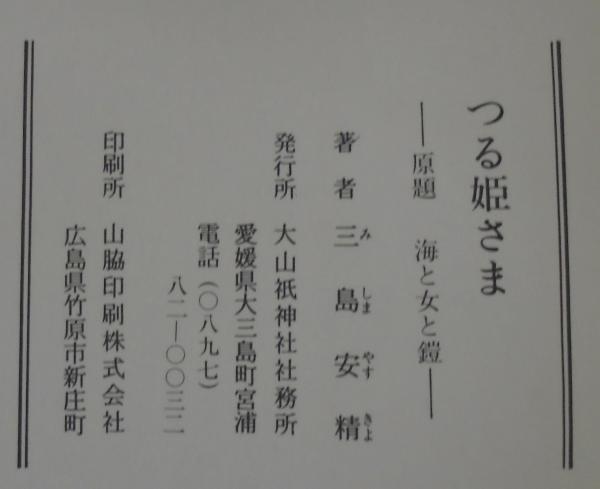 つる姫さま
——原題　海と女と鎧——
著者　三島安精
み　しま　やす　きよ
発行所　大山祇神社社務所
愛媛県大三島町宮浦
電話（〇八九七）
八二—〇〇三二
印刷所　山脇印刷株式会社
広島県竹原市新庄町